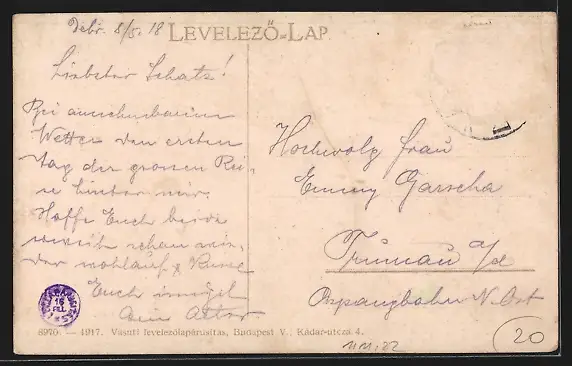 Debr. 8/5. 18
LEVELEZŐ-LAP
Liebster Schatz!
Bei annehmbarem
Wetter den ersten
Tag der grossen Rei-
se hinter mir.
Hoffe Euch beide
schon wie-
der wohlauf & Küsse
Euch innigst
Hochwolg Frau
Emmy Garscha
Trumau a/d
Aspangbahn N. Öst
8970. — 1917. Vasuti levelezőlapárusítás, Budapest V., Kádár-utcza 4.
20